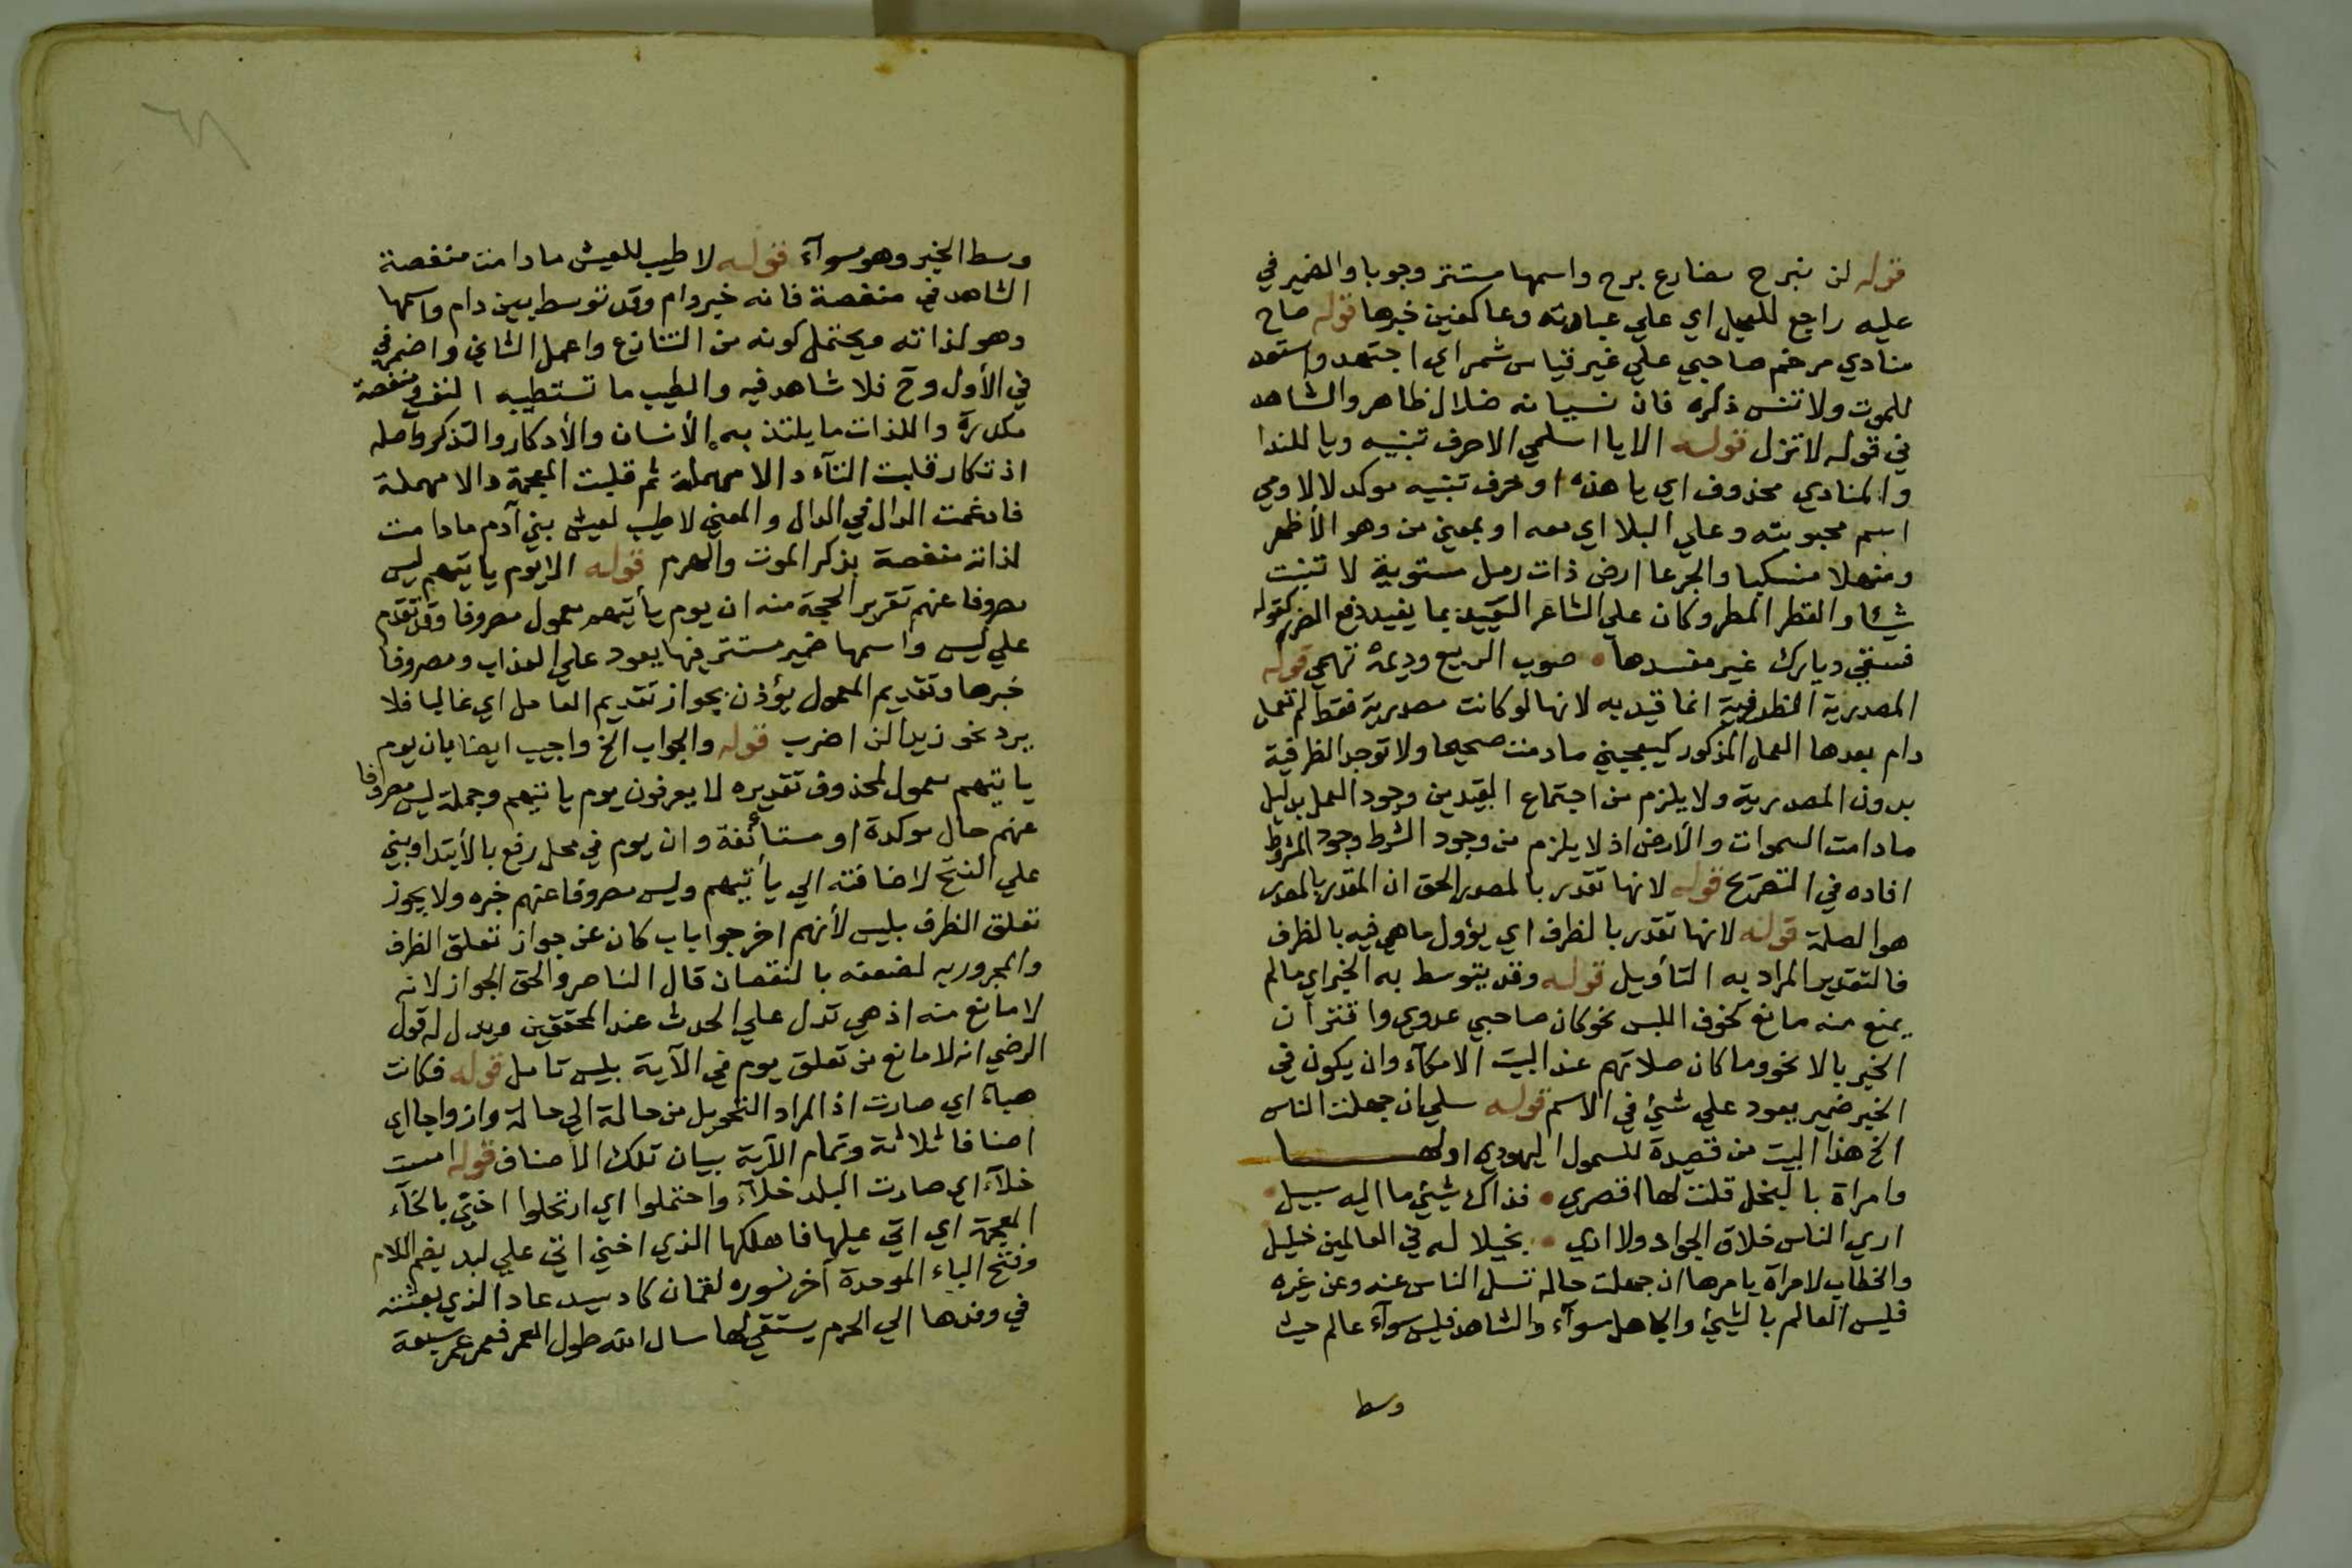 قوله لن نبرح مضارع برح واسمها مستتر وجوبا والضمير في
عليه راجع للعجل اي علي عبادته وعاكفين خبرها قوله صاح
منادي مرخم صاحبي علي غير قياس شمر اي اجتهد واستعد
للموت ولا تنس ذكره فان نسيانه ضلال ظاهر والشاهد
في قوله لا تزل قوله الا يا اسلمي الا حرف تنبيه ويا للندا
والمنادي محذوف اي يا هذه او حرف تنبيه موكد لالا ومي
اسم محبوبته وعلي البلا اي معه او بمعني من وهو الأظهر
ومنهلا منسكبا والجرعا ارض ذات رمل مستوية لا تنبت
شيئا والقطر المطر وكان علي الشاعر التقييد بما يفيد دفع الضرر كقوله
فسقي ديارك غير مفسدها • صوب الربيع وديمة تهمي قوله
المصدرية الظرفية انما قيد به لانها لو كانت مصدرية فقط لم تعمل
دام بعدها العمل المذكور كيعجبني ما دمت صحيحا ولا توجد الظرفية
بدون المصدرية ولا يلزم من اجتماع القيدين وجود العمل بدليل
ما دامت السموات والأرض اذ لا يلزم من وجود الشرط وجود المشروط
افاده في التصريح قوله لانها تقدر بالمصدر الحق ان المقدر بالمصدر
هو الصلة قوله لانها تقدر بالظرف اي يؤول ما هي فيه بالظرف
فالتقدير المراد به التأويل قوله وقد يتوسط به الخبر اي ما لم
يمنع منه مانع كخوف اللبس نحو كان صاحبي عدوي واقتران
الخبر بالا نحو وما كان صلاتهم عند البيت الا مكآء وان يكون في
الخبر ضمير يعود علي شيئ في الاسم قوله سلي ان جهلت الناس
الخ هذا البيت من قصيدة للسمول اليهودي اولها
وامراة بالبخل قلت لها اقصري • فذاك شيئ ما اليه سبيل •
اري الناس خلان الجواد ولا اري • بخيلا له في العالمين خليل
والخطاب لامرأة يامرها ان جهلت حاله تسل الناس عنه وعن غيره
فليس العالم بالشيئ والجاهل سوآء والشاهد فليس سوآء عالم حيث
وسط
٦٨
وسط الخبر وهو سوآء قوله لا طيب للعيش ما دامت منغصة
الشاهد في منغصة فانه خبر دام وقد توسط بين دام واسمها
وهو لذاته ويحتمل كونه من التنازع واعمل الثاني واضمر في
في الأول وح فلا شاهد فيه والطيب ما تستطيبه النفس ومنغصة
مكدرة واللذات ما يلتذ به الأنسان والأدكار والتذكر واصله
اذتكار قلبت التآء دالا مهملة ثم قلبت المعجمة دالا مهملة
فادغمت الدال في الدال والمعني لا طيب لعيش بني آدم ما دامت
لذاته منغصة بذكر الموت والهرم قوله الا يوم ياتيهم ليس
مصروفا عنهم تقرير الحجة منه ان يوم يأتيهم معمول مصروفا وقد تقدم
علي ليس واسمها ضمير مستتر فيها يعود علي العذاب ومصروفا
خبرها وتقديم المعمول يؤذن بجواز تقديم العامل اي غالبا فلا
يرد نحو زيدا لن اضرب قوله والجواب الخ واجيب ايضا بان يوم
ياتيهم معمول لمحذوف تقديره لا يعرفون يوم ياتيهم وجملة ليس مصروفا
عنهم حال موكدة او مستأنفة وان يوم في محل رفع بالأبتدا وبني
علي الفتح لاضافته الي يأتيهم وليس مصروفا عنهم خبره ولا يجوز
تعلق الظرف بليس لأنهم اخرجوا باب كان عن جواز تعلق الظرف
والمجرور به لضعفه بالنقصان قال الناصر والحق الجواز لانه
لا مانع منه اذ هي تدل علي الحدث عند المحققين ويدل له قول
الرضي انه لا مانع من تعلق يوم في الآية بليس تامل قوله فكانت
هبآء اي صارت اذ المراد التحويل من حالة الي حالة وازواجا اي
اصنافا ثلاثة وتمام الآية بيان تلك الأصناف قوله امست
خلآء اي صارت البلد خلآء واحتملوا اي ارتحلوا اخني بالخآء
المعجمة اي اتي عليها فاهلكها الذي اخني اتي علي لبد بضم اللام
وفتح الباء الموحدة آخر نسوره لقمان كاد سيد عاد الذي بعثته
في وفدها الي الحرم يستقي لها سال الله طول العمر فعمر عمر سبعة